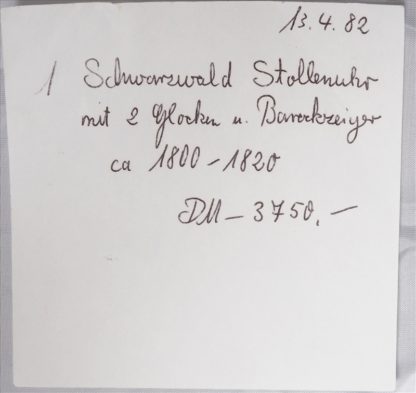 13.4.82
1 Schwarzwald Stollenuhr
mit 2 Glocken u. Barockzeiger
ca 1800-1820
DM - 3750,-